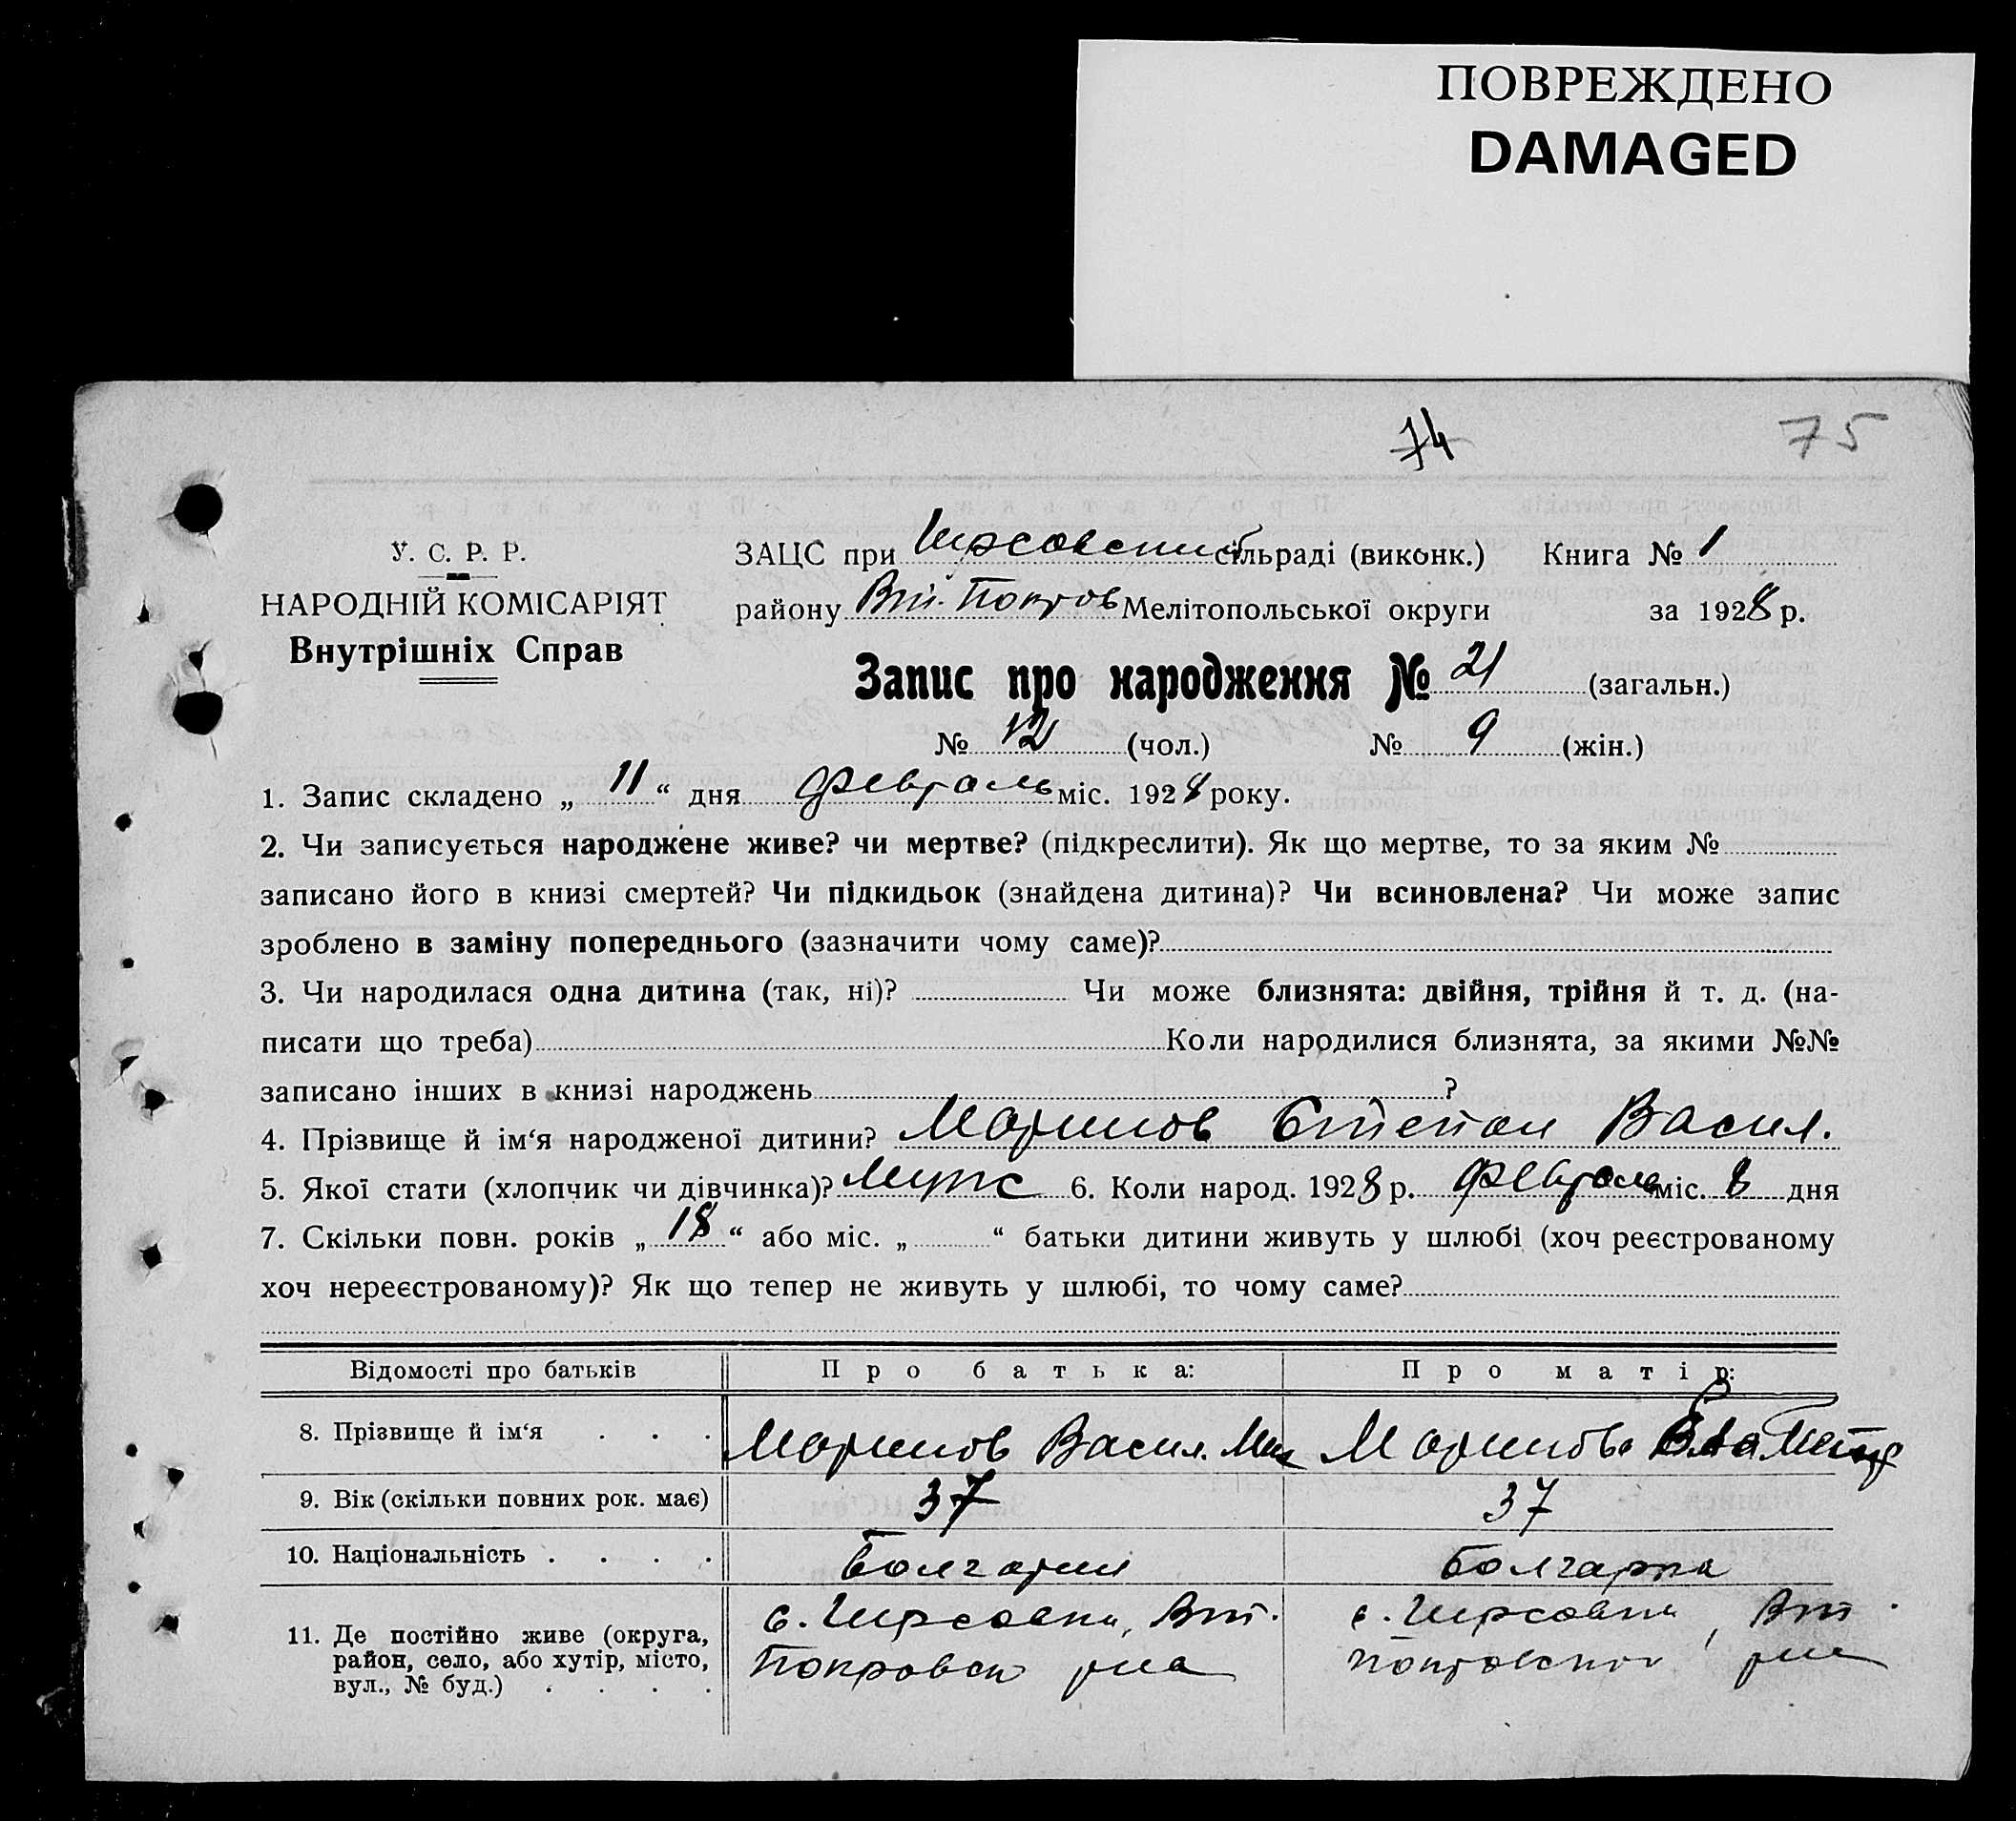 ПОВРЕЖДЕНО
DAMAGED
74
75
У. С. Р. Р.
НАРОДНІЙ КОМІСАРІЯТ
Внутрішніх Справ
ЗАЦС при сільраді (виконк.) Книга № 1
району Вт. Покров Мелітопольської округи за 1928 р.
Запис про народження № 21 (загальн.)
№ 12 (чол.) № 9 (жін.)
1. Запис складено „ 11 “ дня Февраль міс. 1928 року.
2. Чи записується народжене живе? чи мертве? (підкреслити). Як що мертве, то за яким №
записано його в книзі смертей? Чи підкидьок (знайдена дитина)? Чи всиновлена? Чи може запис
зроблено в заміну попереднього (зазначити чому саме)?
3. Чи народилася одна дитина (так, ні)? Чи може близнята: двійня, трійня й т. д. (на-
писати що треба) Коли народилися близнята, за якими №№
записано інших в книзі народжень ?
4. Прізвище й ім‘я народженої дитини? Маринов Степан Васил.
5. Якої стати (хлопчик чи дівчинка)? Мужс 6. Коли народ. 1928 р. Февраль міс. 8 дня
7. Скільки повн. років „ 18 “ або міс. „ “ батьки дитини живуть у шлюбі (хоч реєстрованому
хоч нереєстрованому)? Як що тепер не живуть у шлюбі, то чому саме?
Відомості про батьків Про батька: Про матір:
8. Прізвище й ім‘я . . . Маринов Васил. Мих Маринова
9. Вік (скільки повних рок. має) 37 37
10. Національність . . . . Болгарин Болгарка
11. Де постійно живе (округа,
район, село, або хутір, місто,
вул., № буд.) . . . .
с. Вт.
Покровск рна
с. Вт.
Покровског рна